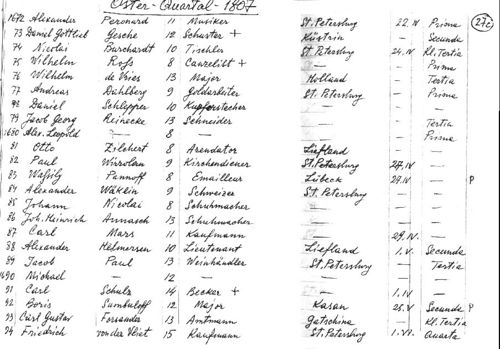 Oster-Quartal-1807 272
1672 Alexander Peronard 11 Musiker St. Petersburg 22. IV Prima
73 Daniel Gottlieb Gesche 12 Schuster + Küstrin — Secunda
74 Nicolai Burchardt 10 Tischler St Petersburg 24. IV Kl. Tertia
75 Wilhelm Ross 8 Canzelist + — — Prima
76 Wilhelm de Vries 13 Major Holland — Tertia
77 Andreas Dahlberg 9 Goldarbeiter St. Petersburg — Prima
78 Daniel Schlepper 10 Kupferstecher — —
79 Jacob Georg Reinecke 13 Schneider — — Tertia
1680 Alex. Leopold — 8 — — — Prima
81 Otto Zilchert 8 Arendator Liefland —
82 Paul 9 Kirchendiener St. Petersburg 27. IV —
83 Wassily Pannoff 8 Emailleur Lübeck 29. IV — P
84 Alexander Wäklin 9 Schweizer St. Petersburg — —
85 Johann Nicolai 8 Schuhmacher — — —
86 Joh. Heinrich Annasch 13 Schuhmacher — — —
87 Carl Mars 11 Kaufmann — 29. IV. —
88 Alexander Helmersen 10 Lieutenant Liefland 1. V. Secunda
89 Jacob Paul 13 Weinhändler St. Petersburg — Tertia
1690 Michael — 12 — — — —
91 Carl Schulz 14 Becker + — 1. IV —
92 Boris Sumbuloff 12 Major Kasan 25. V Secunda P
93 Carl Gustav Forsander 13 Amtmann Gatschina — Kl. Tertia
94 Friedrich von der Vliet 15 Kaufmann St. Petersburg 1. VI. Quarta